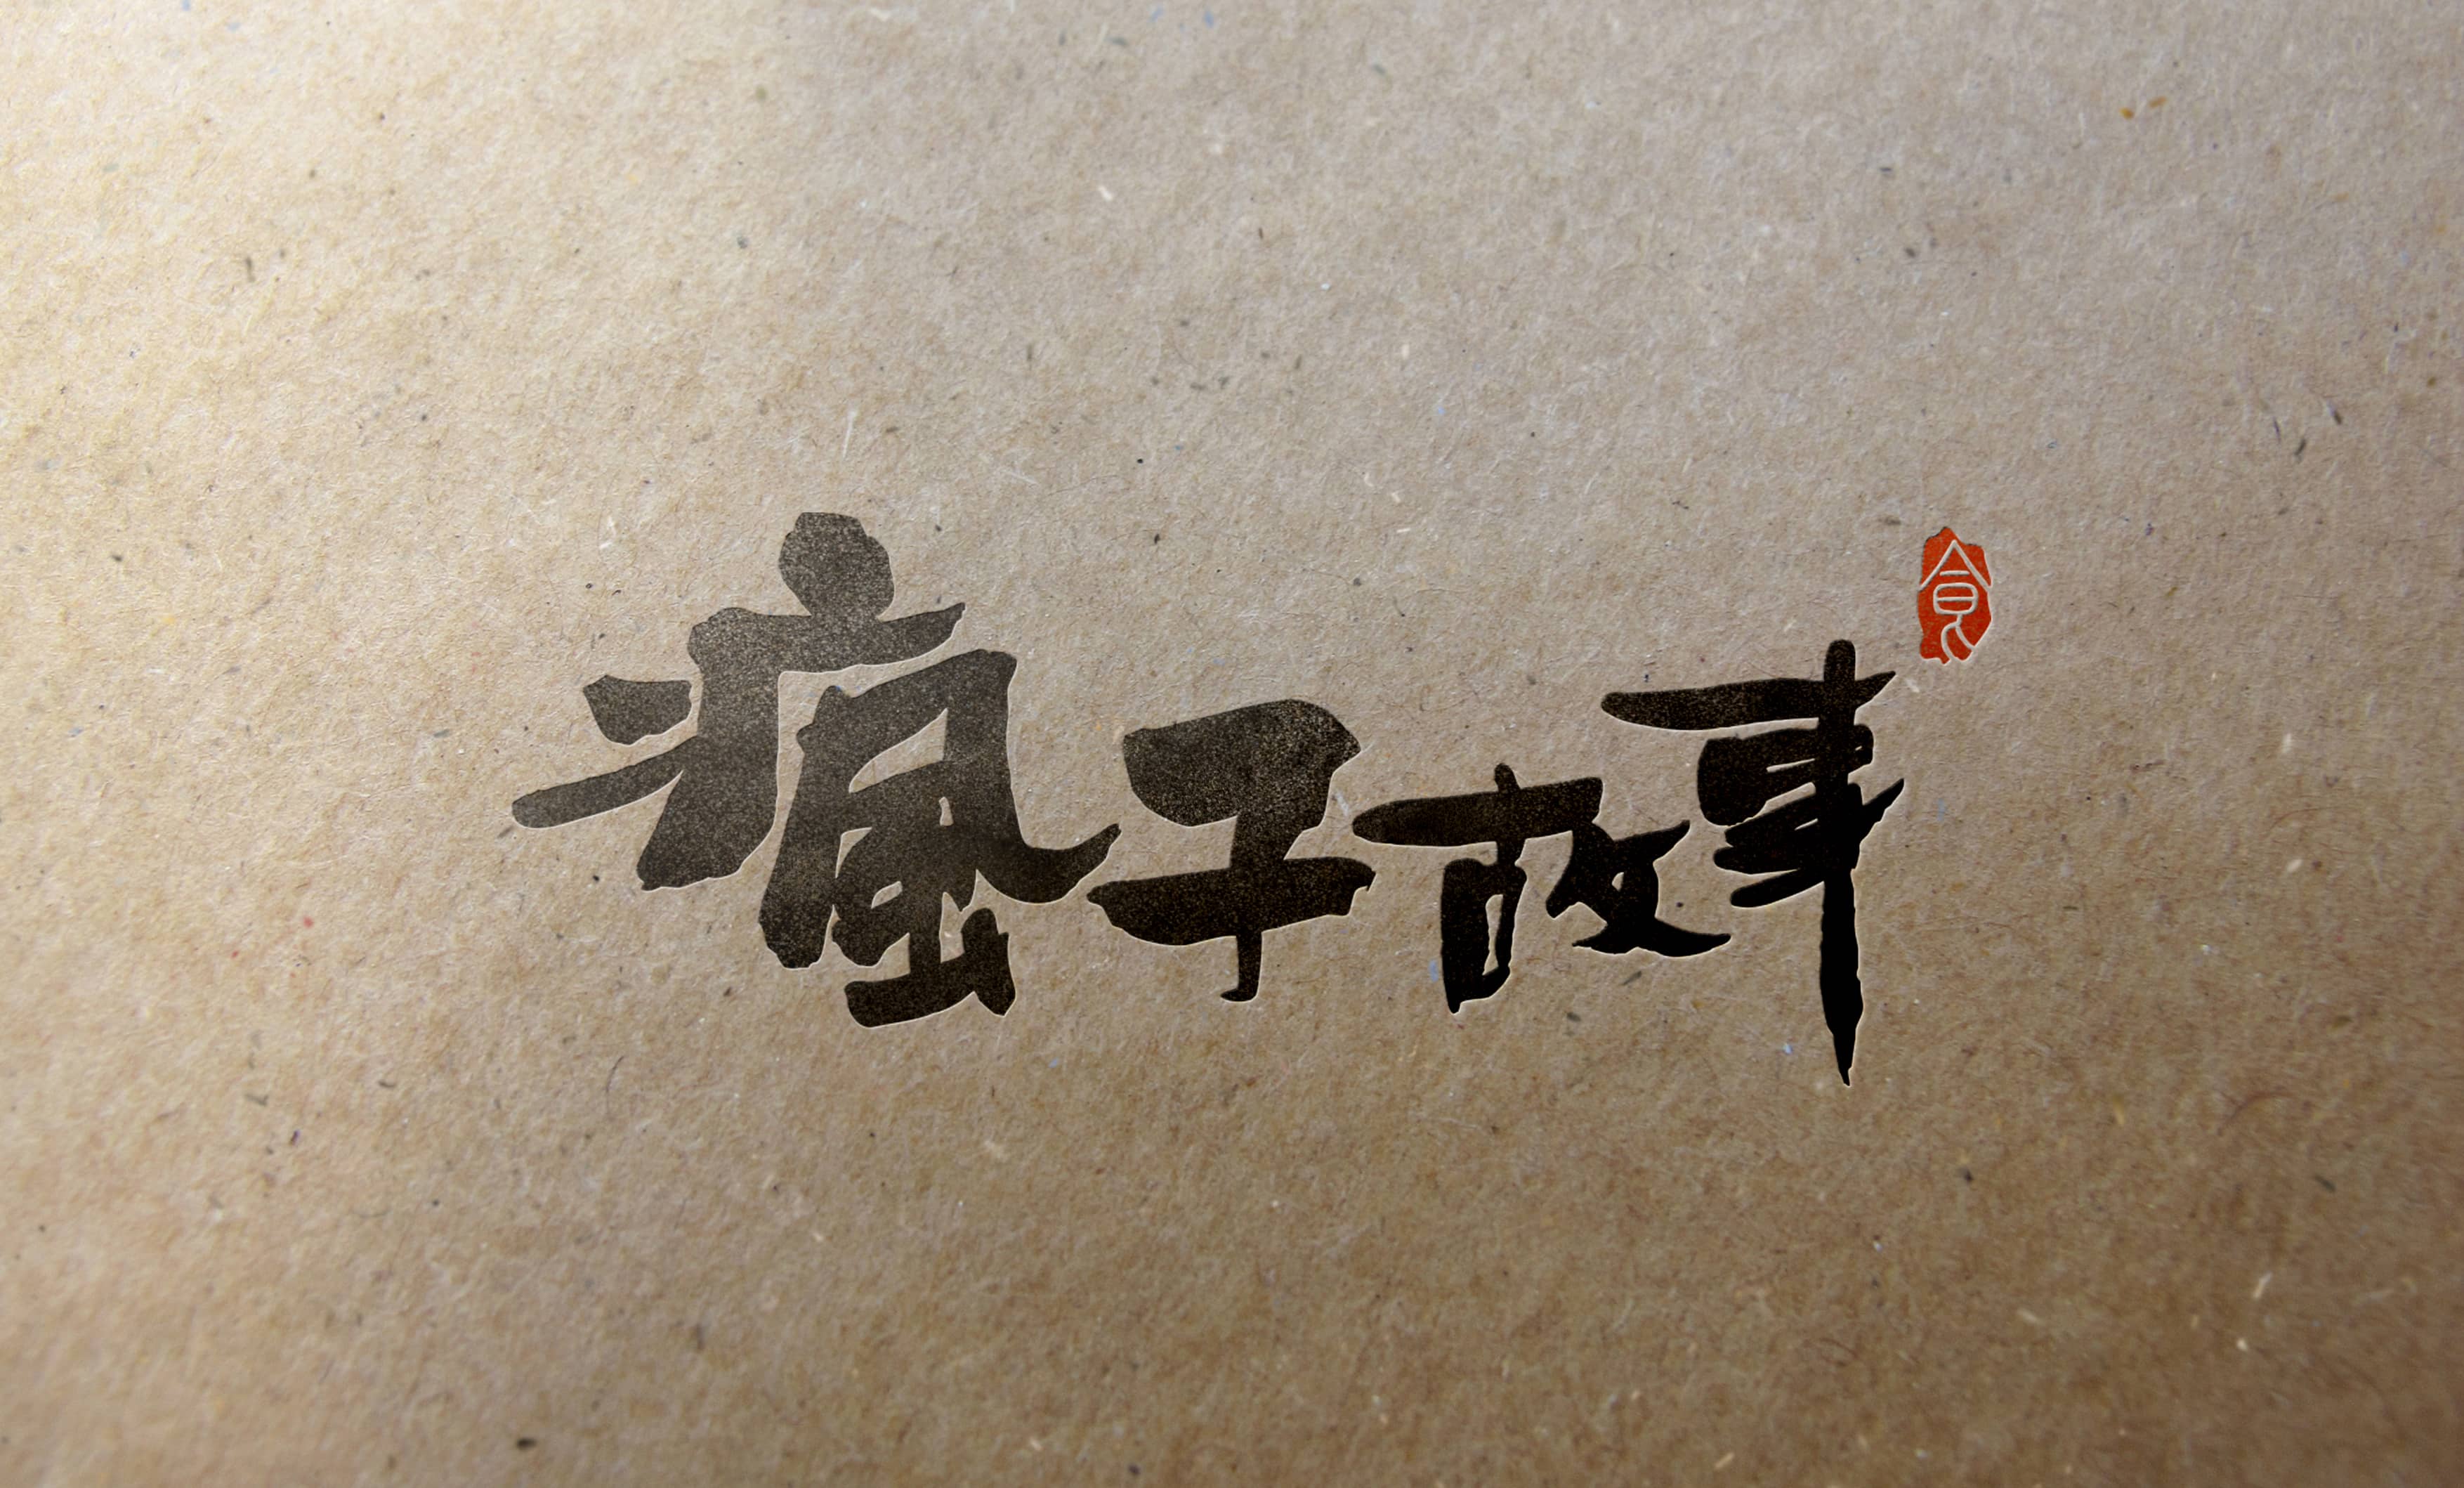 瘋子故事
食